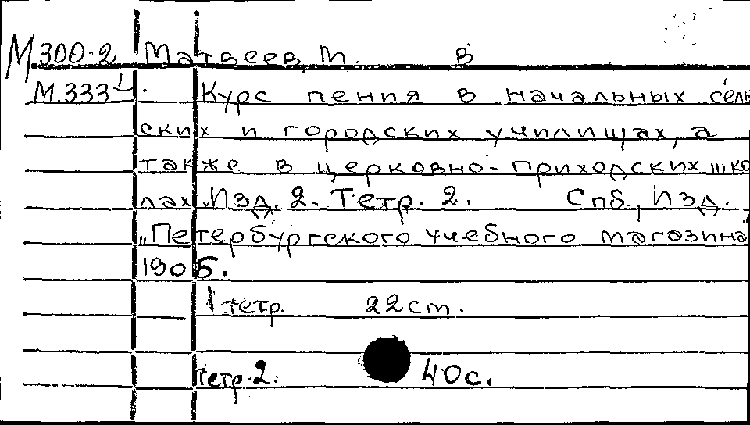 М300-2 Матвеев, М. В
М.333¹ Курс пения в начальных сель
ских и городских училищах, а
также в церковно-приходских шко
лах. Изд. 2. Тетр. 2. Спб, Изд.
„Петербургского учебного магазина
1905.
1 тетр. 22 ст.
тетр. 2. 40 с.